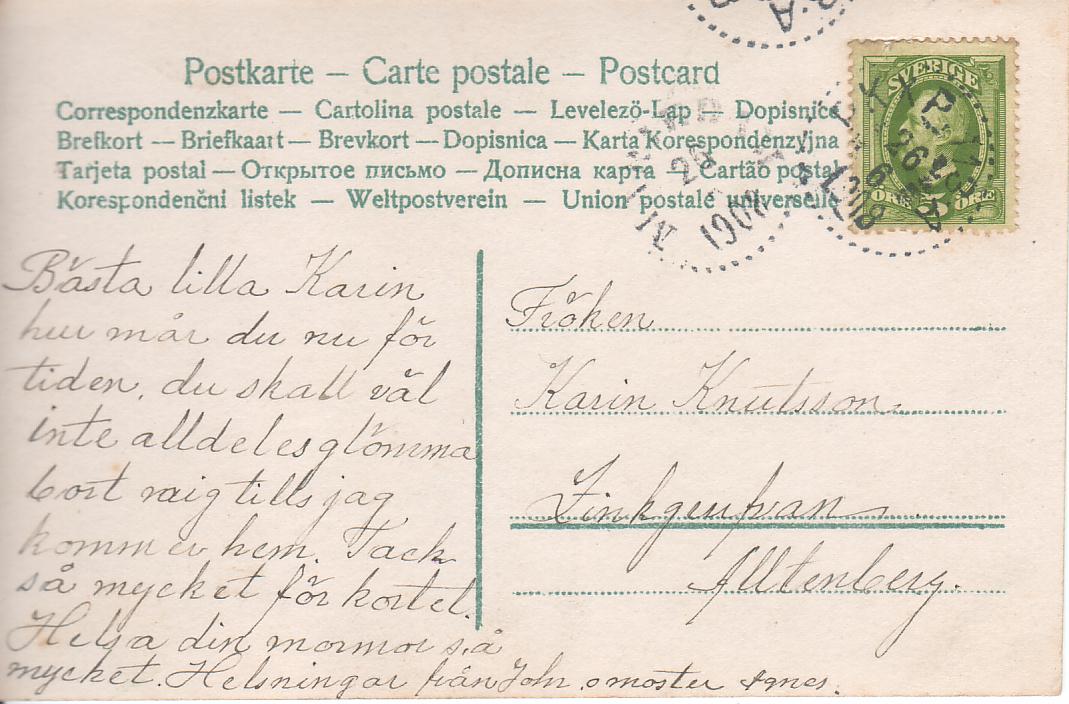 Postkarte – Carte postale – Postcard
Correspondenzkarte — Cartolina postale — Levelezö-Lap — Dopisnice
Brefkort — Briefkaart — Brevkort — Dopisnica — Karta Korespondenzyjna
Tarjeta postal — Открытое письмо — Дописна карта — Cartão postal
Korespondenčni listek — Weltpostverein — Union postale universelle
SVERIGE
ÖRE 5 ÖRE
1908
Bästa lilla Karin
hur mår du nu för
tiden, du skall väl
inte alldeles glömma
bort mig tills jag
kommer hem. Tack
så mycket för kortet.
Helsa din mormor så
mycket. Helsningar från John o moster Agnes.
Fröken
Karin Knutsson.
Alltenberg.